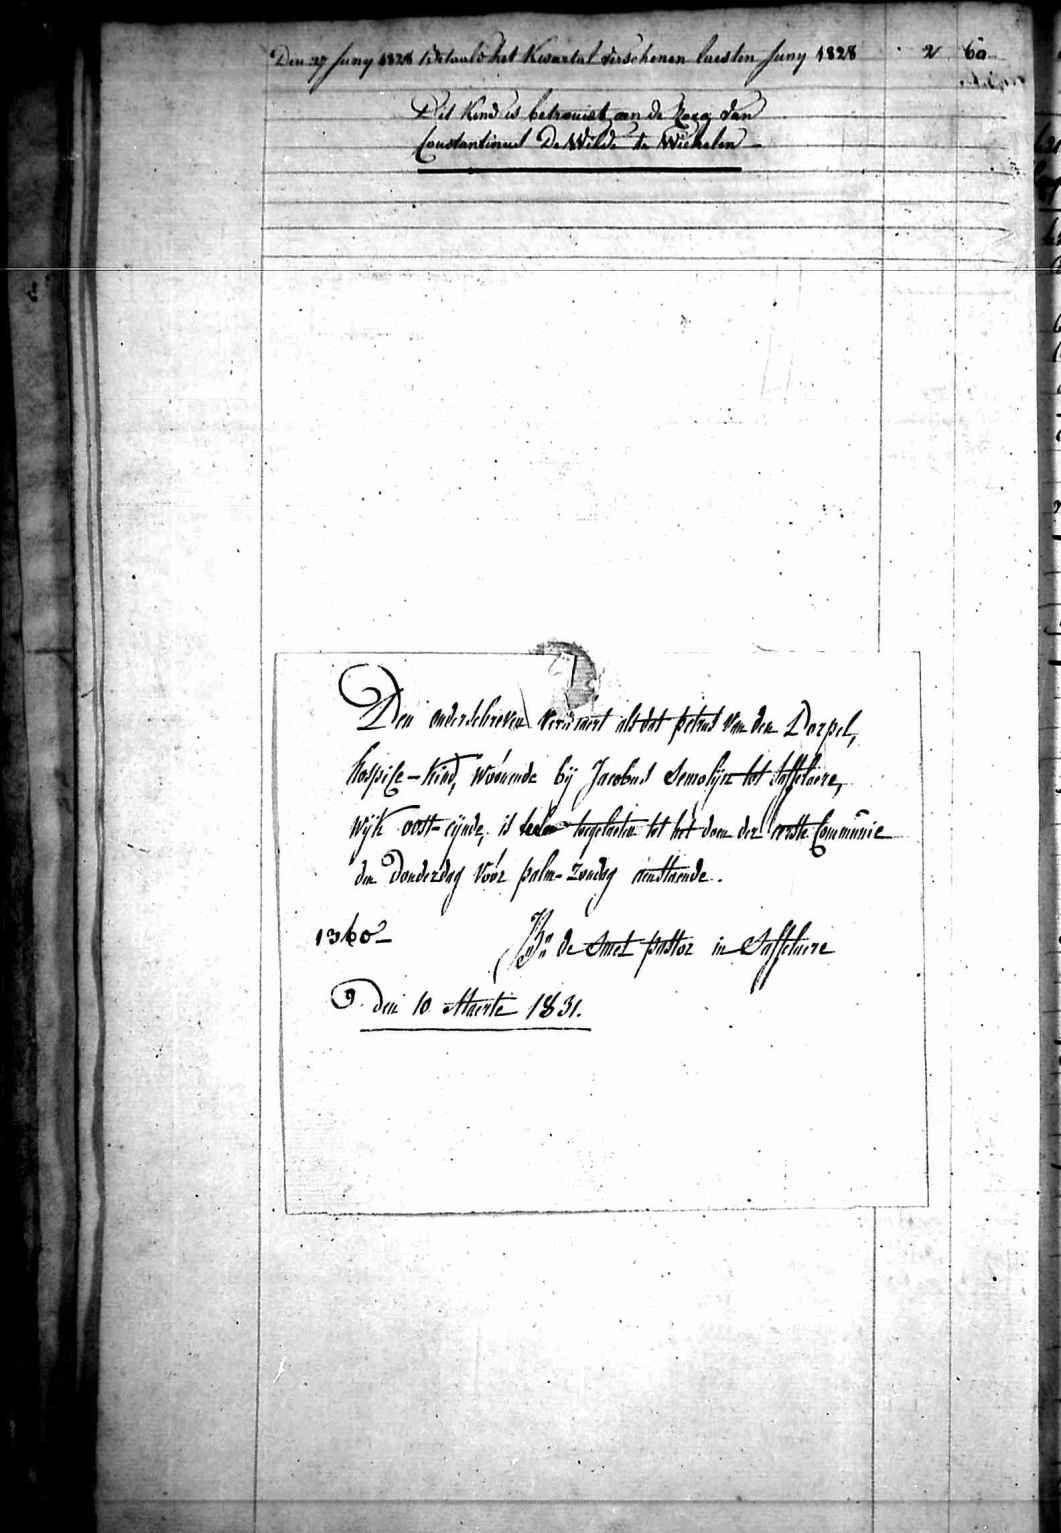 Den 27 Juny 1828 betaald het Kwartal verschenen laesten Juny 1828 2 60
Dit Kind is betrouwt aen de Zorg van
Constantinus De Wilde te Wichelen
Den ondeschreven verclaert als dat petrus van den Dorpel,
hospice-kind, woonende bij Jacobus Semolijn tot Saffelaere,
wijk oost-eijnde, is toegelaeten tot het doen der eerste Communie
den Donderdag voor palm-zondag aenstaende.
1360
B: de Smet pastor in Saffelaere
den 10 Maerte 1831.